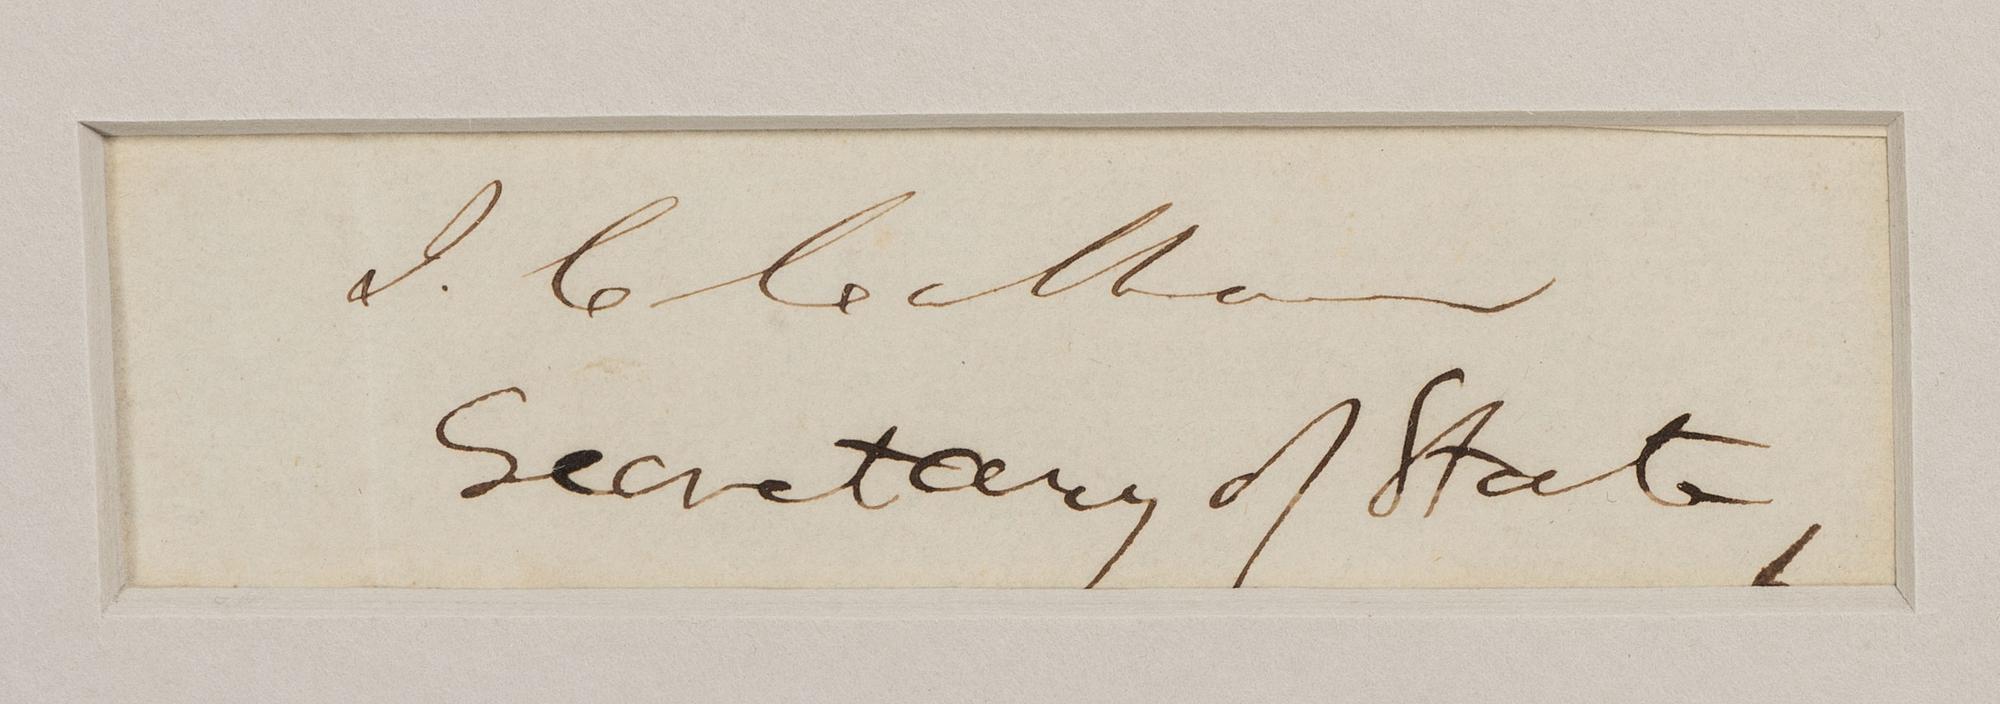 J. C. Calhoun
Secretary of State